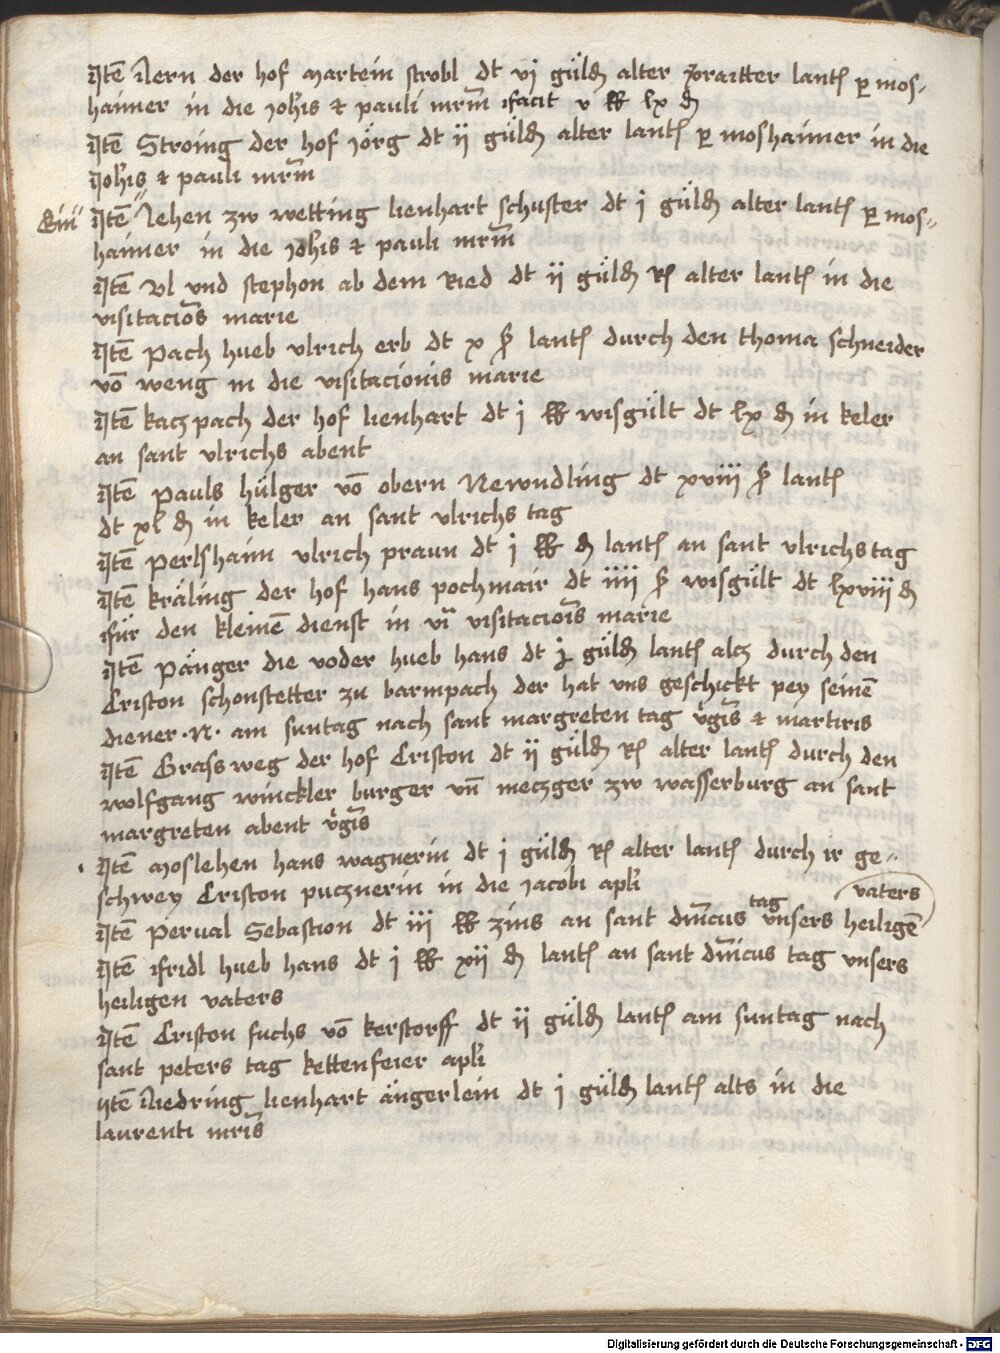 Itē Nern der hof Martein strobl dt vj güldn alter praitter lantß p mos-
haimer in die Joh̄is & pauli mr̄m facit v ℔ lx ₰
Itē Stroing der hof Jörg dt ij güldn alter lantß p moshaimer in die
Joh̄is & pauli mr̄m
Itē lehen zw wetting lienhart schuster dt j güldn alter lantß p mos-
haimer in die Joh̄is & pauli mr̄m
Itē Vl vnd stephon ab dem Ried dt ij güldn Rß alter lantß in die
visitaciōs marie
Itē Pach hueb vlrich erb dt x ß lantß durch den thoma schneider
vō weng in die visitacionis marie
Itē kaczpach der hof lienhart dt j ℔ wisgült dt lx ₰ in keler
an sant vlrichs abent
Itē Pauls hülger vō obern Newndling dt xviii ß lantß
dt xl ₰ in keler an sant vlrichs tag
Itē Perlshaim vlrich praun dt j ℔ ₰ lantß an sant vlrichs tag
Itē kräling der hof hans pochmair dt iiii ß wisgült dt lxviii ₰
für den kleinē dienst in visitaciōis marie
Itē Pänger die voder hueb hans dt j güldn lantß alcz durch den
Criston schonstetter zu barmpach der hat vns geschickt pey seinē
diener .N. am suntag nach sant margreten tag v̄gis & martiris
Itē Grassweg der hof Criston dt ij güldn Rß alter lantß durch den
wolfgang winckler burger vn̄ meczger zw wasserburg an sant
margreten abent v̄gis
Itē Moslehen hans wagnerin dt j güldn Rß alter lantß durch ir ge-
schwey Criston pucznerin in die Jacobi apl̄i
Itē Perual Sebastion dt iii ℔ zins an sant dm̄icus tag vnsers heiligē vaters
Itē fridl hueb hans dt j ℔ xij ₰ lantß an sant dm̄icus tag vnsers
heiligen vaters
Itē Criston fuchs vō kerstorff dt ij güldn lantß am suntag nach
sant peters tag kettenfeier apl̄i
Itē Niedring lienhart ängerlein dt j güldn lantß alts in die
laurenti mr̄is
Digitalisierung gefördert durch die Deutsche Forschungsgemeinschaft - DFG